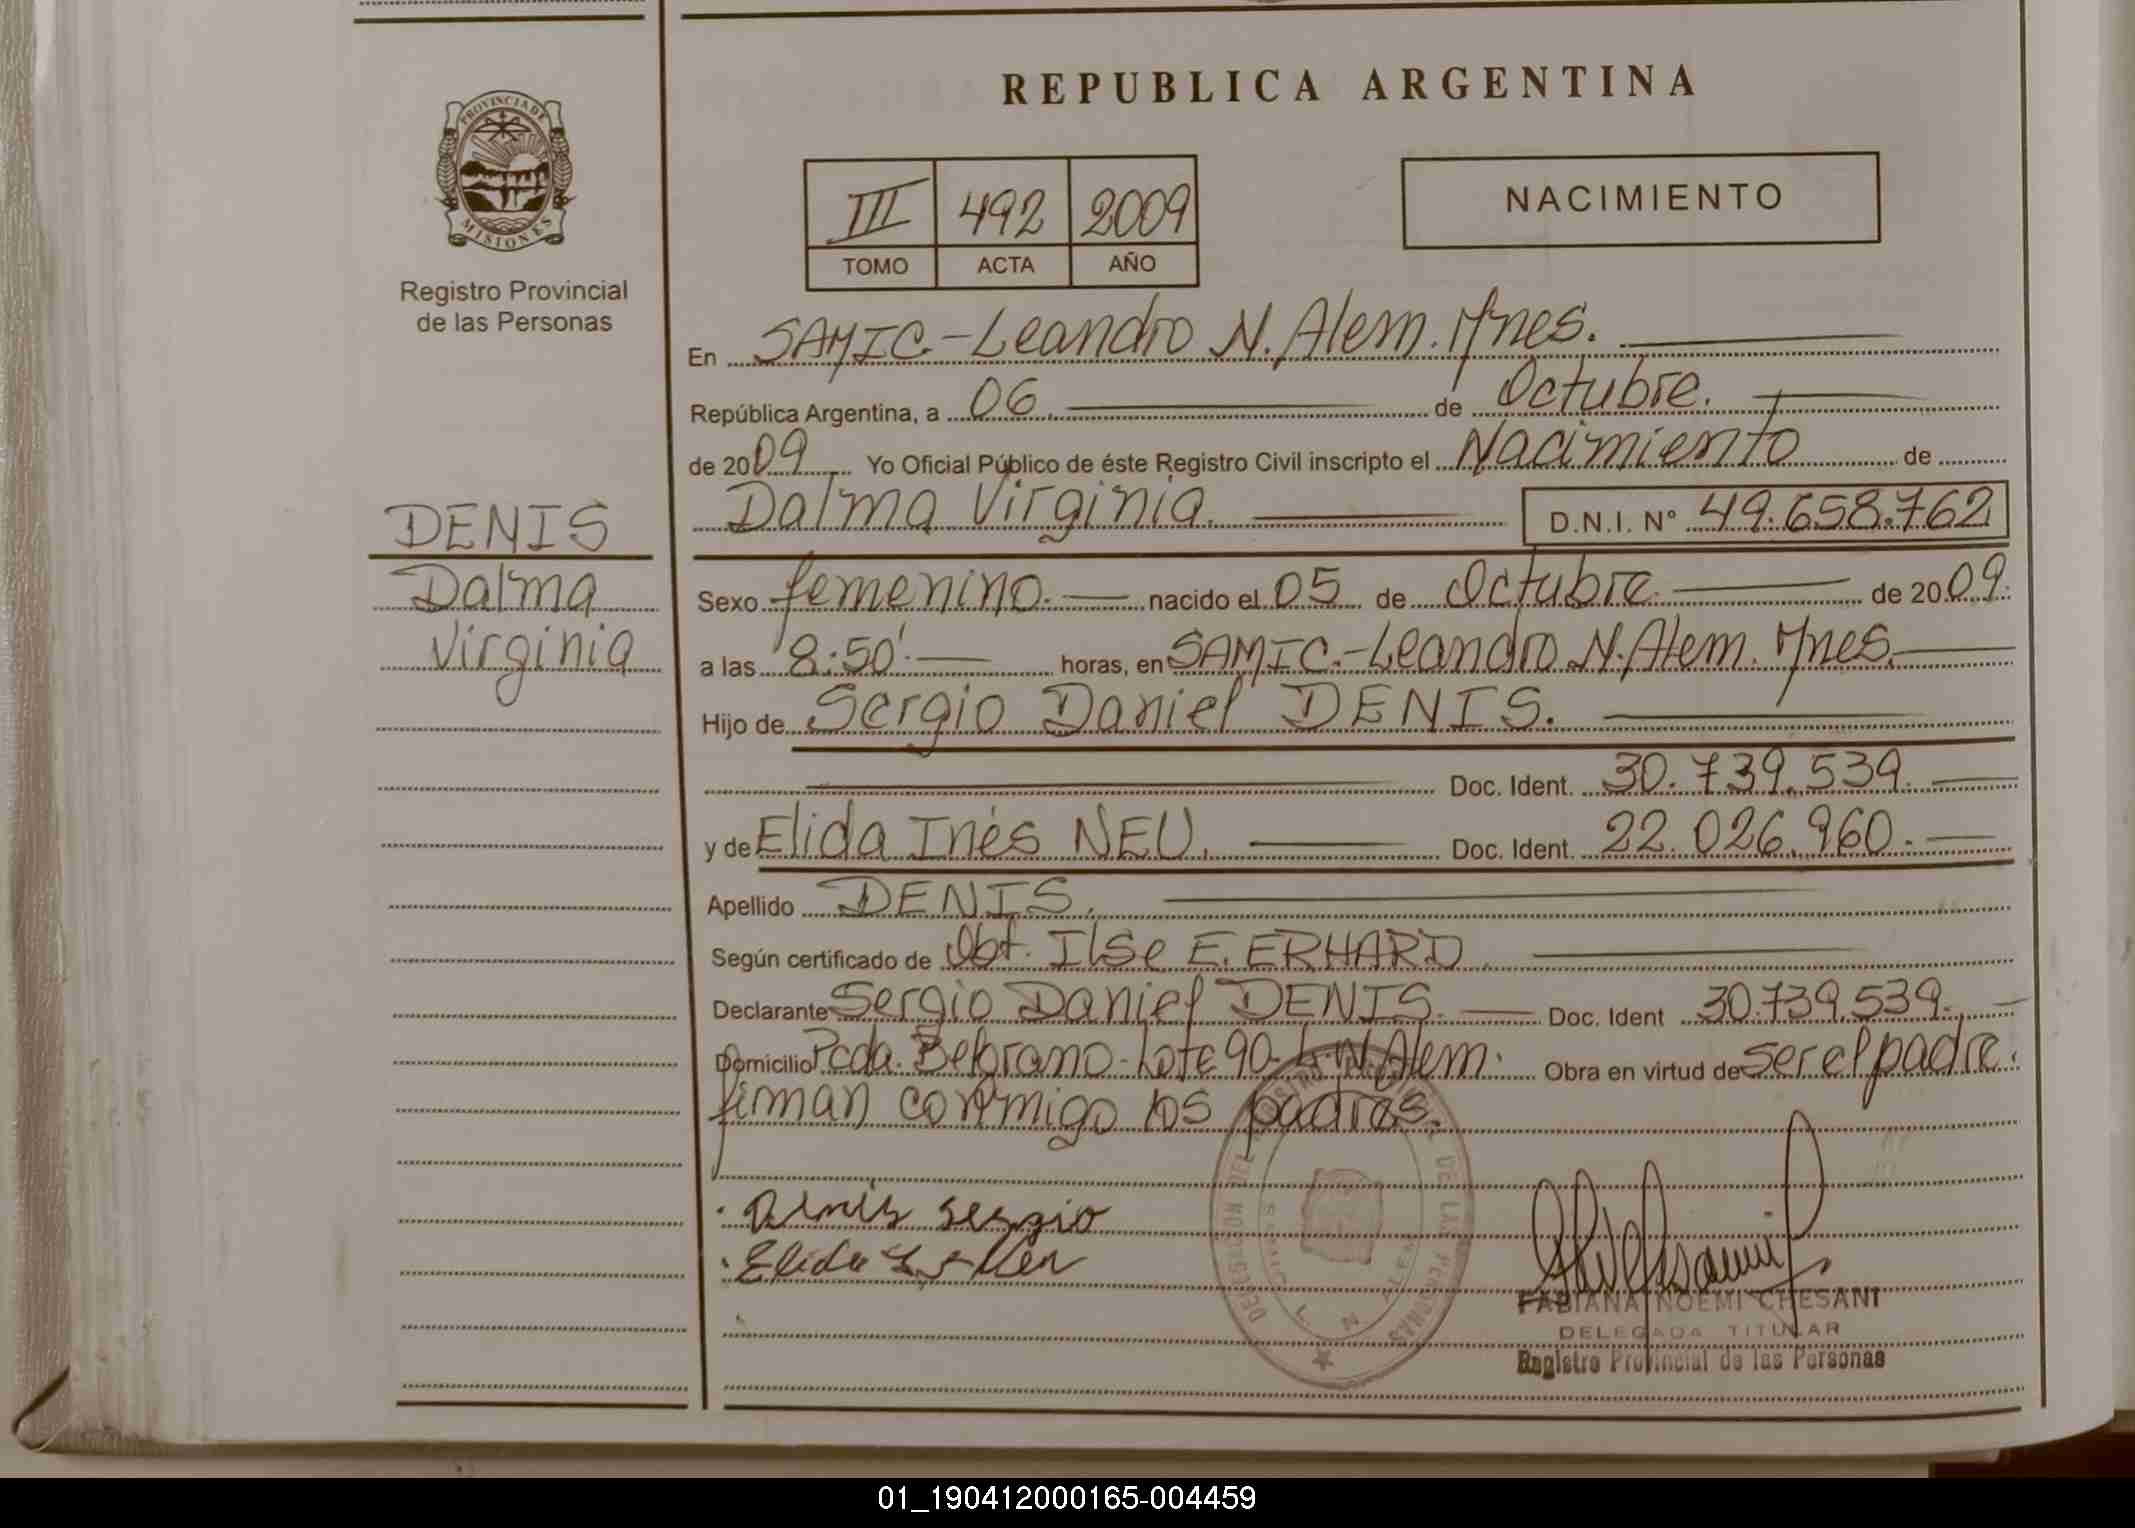 REPUBLICA ARGENTINA
PROVINCIA DE MISIONES
Registro Provincial
de las Personas
III 492 2009
TOMO ACTA AÑO
NACIMIENTO
En SAMIC.-Leandro N. Alem. Mnes.
República Argentina, a 06. de Octubre.
de 2009 Yo Oficial Público de éste Registro Civil inscripto el Nacimiento de
Dalma Virginia. D.N.I. N° 49.658.762
DENIS
Dalma
Virginia
Sexo femenino. nacido el 05 de Octubre. de 2009.
a las 8:50' horas, en SAMIC.-Leandro N. Alem. Mnes.
Hijo de Sergio Daniel DENIS.
Doc. Ident. 30.739.539.
y de Elida Inés NEU. Doc. Ident. 22.026.960.
Apellido DENIS.
Según certificado de Obt. Ilse E. ERHARD.
Declarante Sergio Daniel DENIS. Doc. Ident 30.739.539.
Domicilio Pcda. Belgrano-Lote 90-L.N.Alem. Obra en virtud de ser el padre.
firman conmigo los padres.
Denis Sergio
Elida
DELEGACION DEL REGISTRO DE LAS PERSONAS
L N ALEM
FABIANA NOEMI CHESANI
DELEGADA TITULAR
Registro Provincial de las Personas
01_190412000165-004459